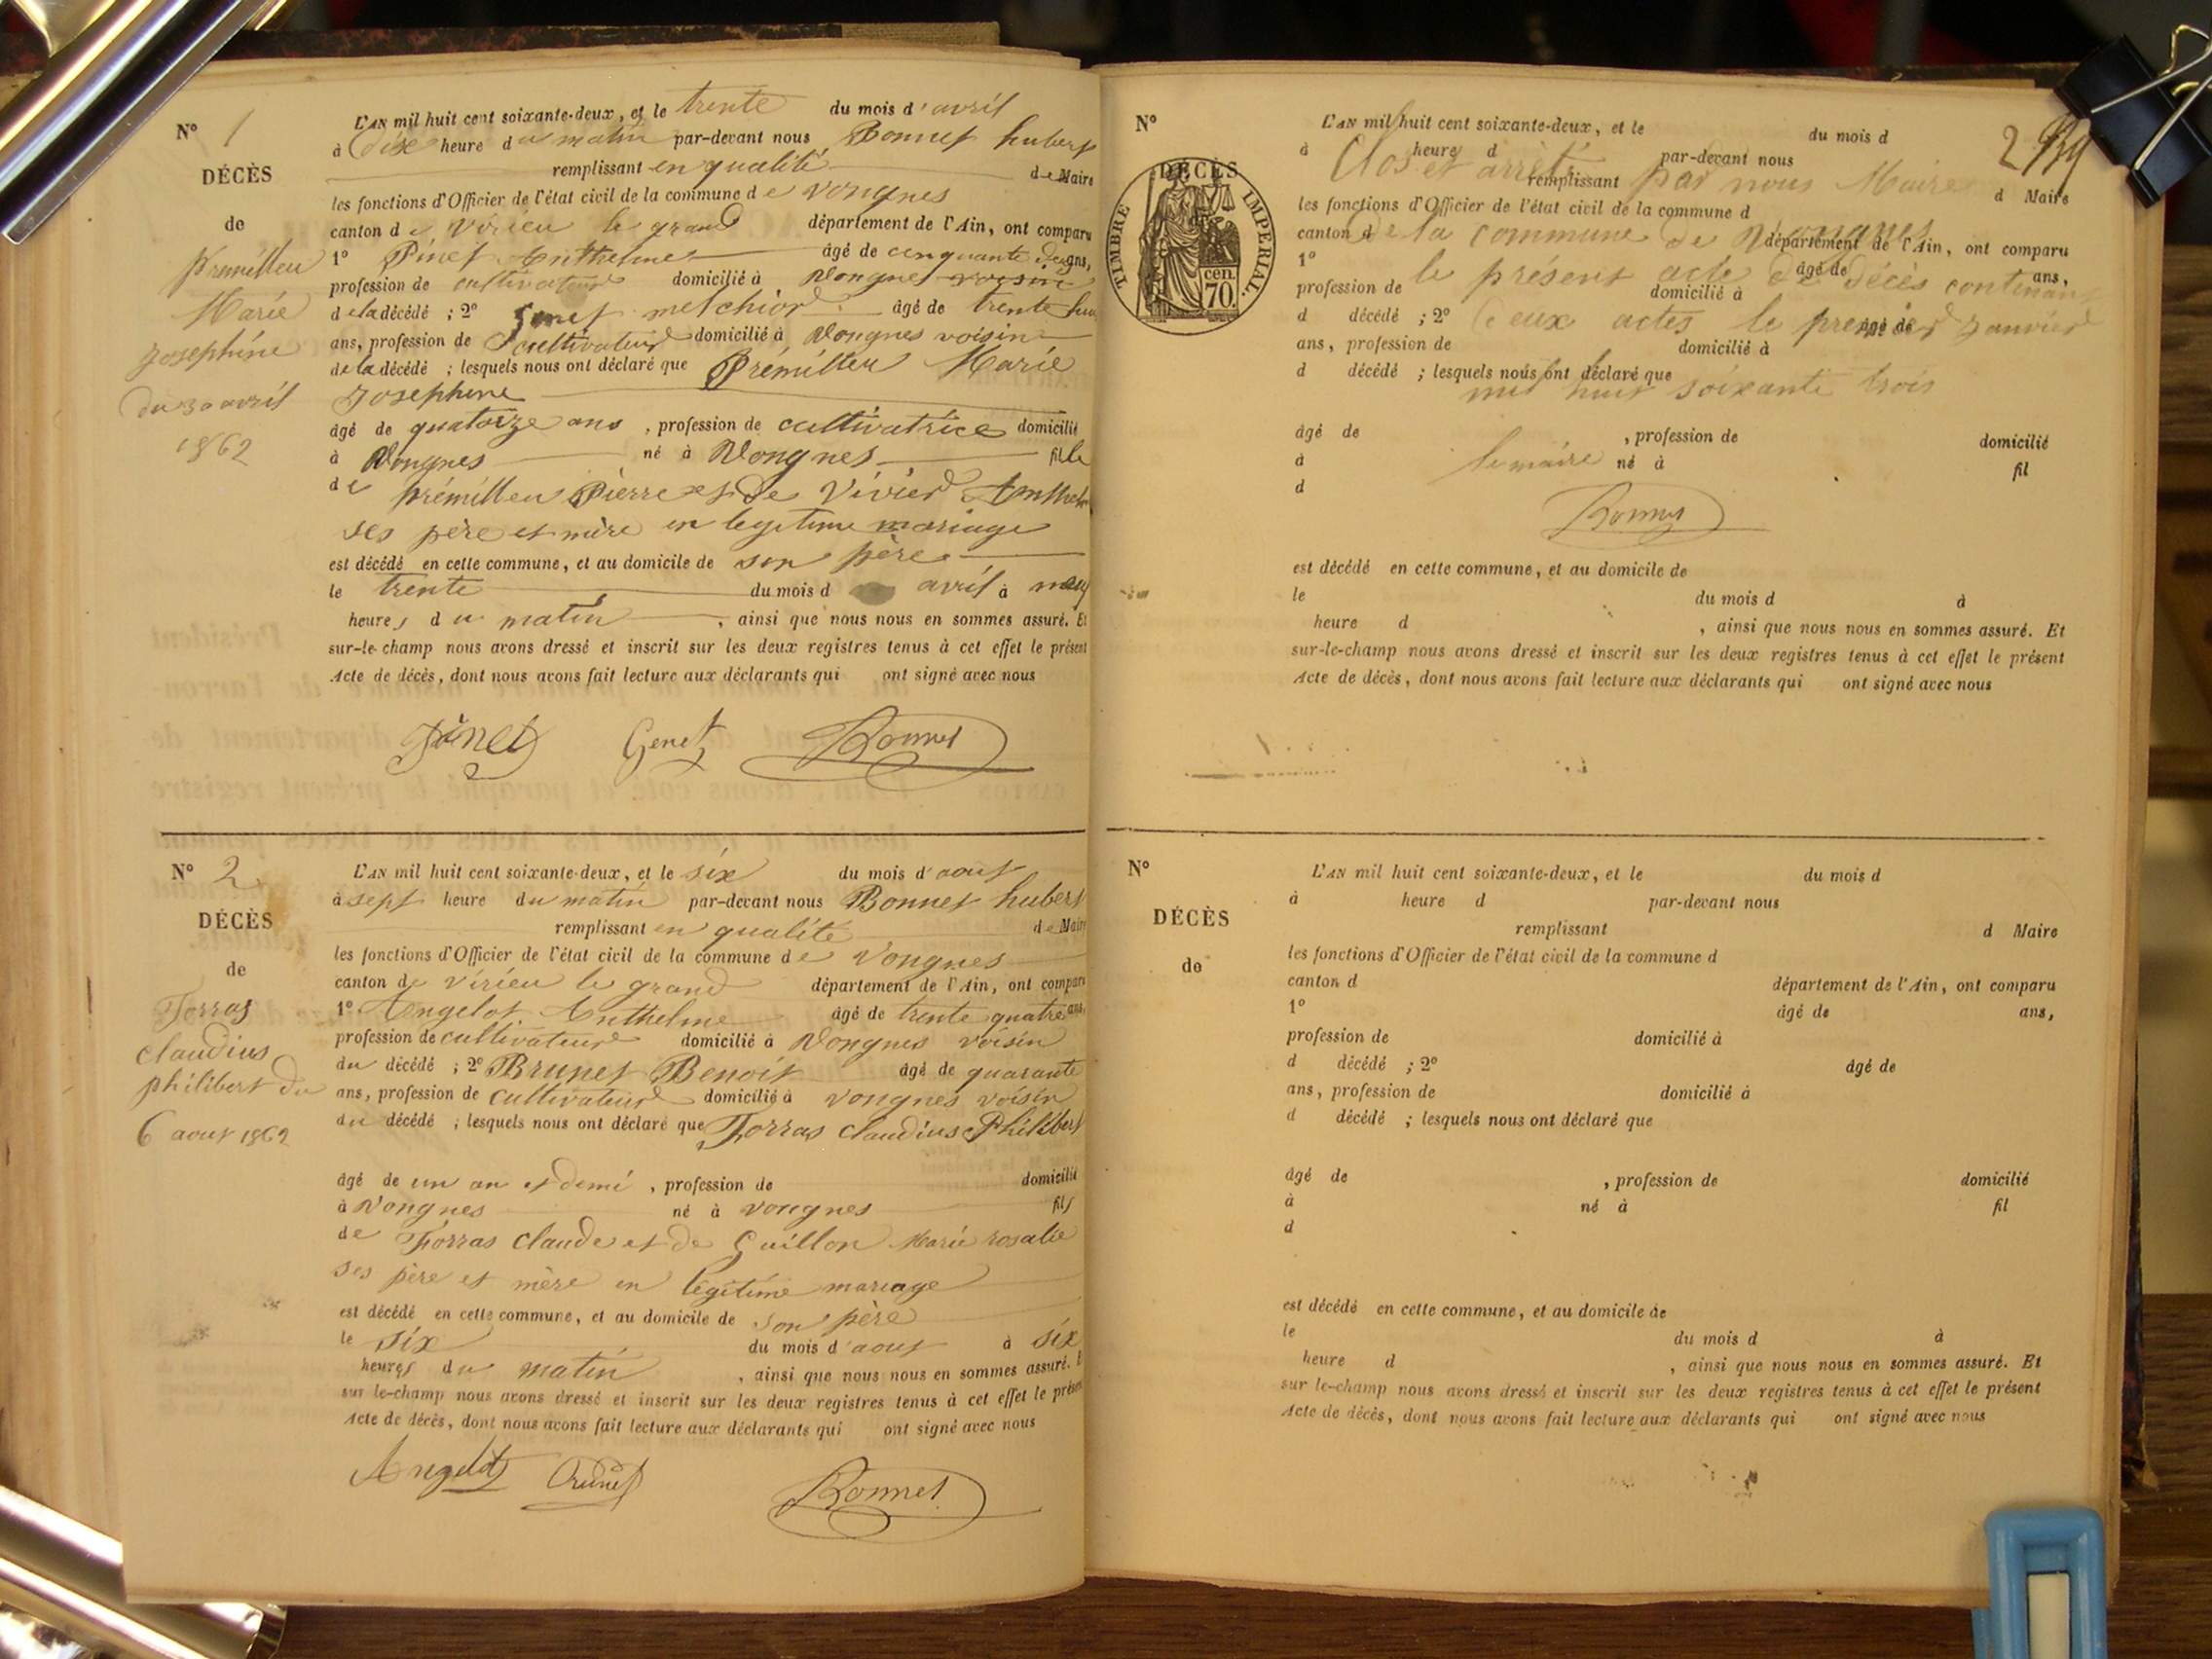 N° 1
DÉCÈS
de
Prémilleu
Marie
Josephine
du 30 avril
1862
L'AN mil huit cent soixante-deux, et le trente du mois d'avril
à dix heure du matin par-devant nous Bonnet hubert
remplissant en qualité de Maire
les fonctions d'Officier de l'état civil de la commune de Vongnes
canton de virieu le grand département de l'Ain, ont comparu
1° Pinet Anthelme âgé de cinquante deux ans,
profession de cultivateur domicilié à Vongnes voisin
de la décédé ; 2° Genet melchior âgé de trente
ans, profession de cultivateur domicilié à Vongnes voisin
de la décédé ; lesquels nous ont déclaré que Prémilleu Marie
Josephine
âgé de quatorze ans, profession de cultivatrice domicilié
à Vongnes né à Vongnes fille
de prémilleu Pierre et de Vivier Anthel
ses père et mère en legitime mariage
est décédé en cette commune, et au domicile de son père
le trente du mois d avril à neuf
heures du matin, ainsi que nous nous en sommes assuré. Et
sur-le-champ nous avons dressé et inscrit sur les deux registres tenus à cet effet le présent
Acte de décès, dont nous avons fait lecture aux déclarants qui ont signé avec nous
Pinet Genet Bonnet
N° 2
DÉCÈS
de
Forras
claudius
philibert du
6 aout 1862
L'AN mil huit cent soixante-deux, et le six du mois d'aout
à sept heure du matin par-devant nous Bonnet hubert
remplissant en qualité de Maire
les fonctions d'Officier de l'état civil de la commune de Vongnes
canton de virieu le grand département de l'Ain, ont comparu
1° Angelot Anthelme âgé de trente quatre ans,
profession de cultivateur domicilié à Vongnes voisin
du décédé ; 2° Brunet Benoit âgé de quarante
ans, profession de cultivateur domicilié à vongnes voisin
du décédé ; lesquels nous ont déclaré que Forras claudius Philibert
âgé de un an et demi, profession de domicilié
à Vongnes né à vongnes fils
de Forras claude et de Guillon Marie rosalie
ses père et mère en légitime mariage
est décédé en cette commune, et au domicile de son père
le six du mois d'aout à six
heures du matin, ainsi que nous nous en sommes assuré. E
sur le-champ nous avons dressé et inscrit sur les deux registres tenus à cet effet le présent
Acte de décès, dont nous avons fait lecture aux déclarants qui ont signé avec nous
Angelot Brunet Bonnet
N°
DÉCÈS
TIMBRE IMPERIAL.
cen.
70.
L'AN mil huit cent soixante-deux, et le du mois d
à heure d par-devant nous
Clos et arrêté par nous Maire
remplissant d Maire
les fonctions d'Officier de l'état civil de la commune d
de la commune de Vongnes
canton d département de l'Ain, ont comparu
1° âgé de ans,
le présent acte de décès contenant
profession de domicilié à
deux actes le premier Janvier
d décédé ; 2° âgé de
ans, profession de domicilié à
d décédé ; lesquels nous ont déclaré que
mil huit soixante trois
âgé de , profession de domicilié
le maire
à né à fil
d
Bonnet
est décédé en cette commune, et au domicile de
le du mois d à
heure d , ainsi que nous nous en sommes assuré. Et
sur-le-champ nous avons dressé et inscrit sur les deux registres tenus à cet effet le présent
Acte de décès, dont nous avons fait lecture aux déclarants qui ont signé avec nous
N°
DÉCÈS
de
L'AN mil huit cent soixante-deux, et le du mois d
à heure d par-devant nous
remplissant d Maire
les fonctions d'Officier de l'état civil de la commune d
canton d département de l'Ain, ont comparu
1° âgé de ans,
profession de domicilié à
d décédé ; 2° âgé de
ans, profession de domicilié à
d décédé ; lesquels nous ont déclaré que
âgé de , profession de domicilié
à né à fil
d
est décédé en cette commune, et au domicile de
le du mois d à
heure d , ainsi que nous nous en sommes assuré. Et
sur le-champ nous avons dressé et inscrit sur les deux registres tenus à cet effet le présent
Acte de décès, dont nous avons fait lecture aux déclarants qui ont signé avec nous